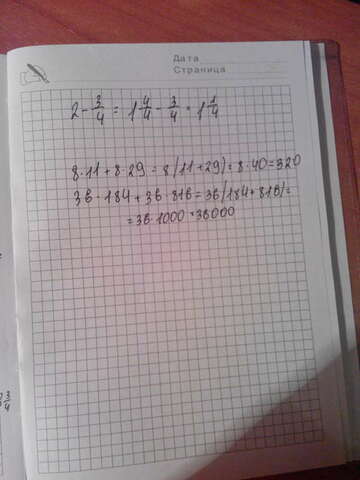 Дата
Страница
2 - 3/4 = 1 4/4 - 3/4 = 1 1/4
8·11 + 8·29 = 8(11+29) = 8·40 = 320
36·184 + 36·816 = 36(184+816) =
= 36·1000 = 36000
3/4